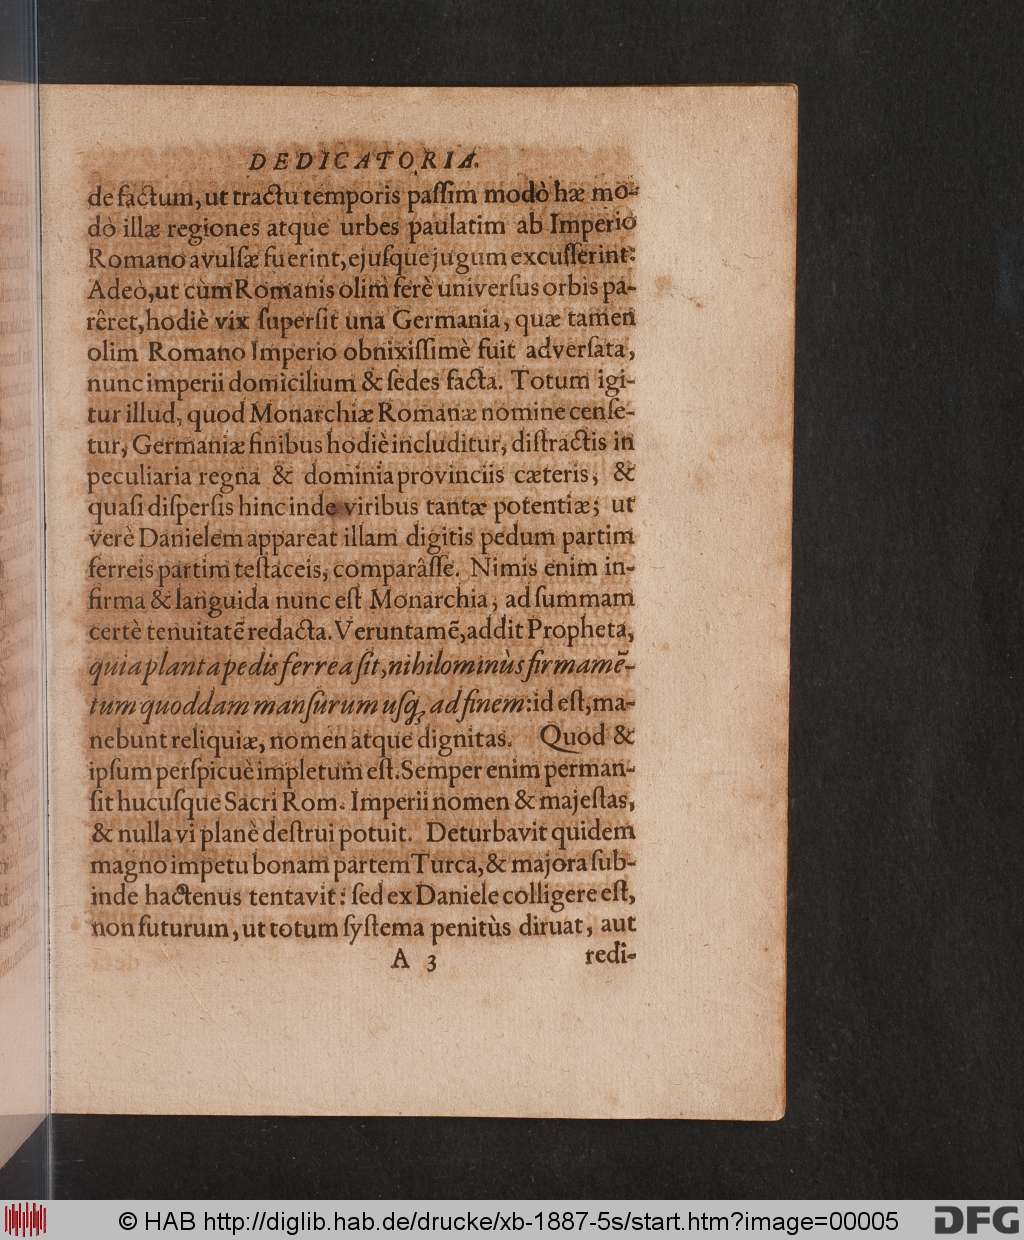 DEDICATORIA.
de factum, ut tractu temporis paſſim modò hæ mo-
dò illæ regiones atque urbes paulatim ab Imperio
Romano avulſæ fuerint, ejuſque jugum excuſſerint:
Adeò, ut cùm Romanis olim ferè univerſus orbis pa-
rêret, hodiè vix ſuperſit una Germania, quæ tamen
olim Romano Imperio obnixiſſimè fuit adverſata,
nunc imperii domicilium & ſedes facta. Totum igi-
tur illud, quod Monarchiæ Romanæ nomine cenſe-
tur, Germaniæ finibus hodiè includitur, diſtractis in
peculiaria regna & dominia provinciis cæteris, &
quaſi diſperſis hinc inde viribus tantæ potentiæ; ut
verè Danielem appareat illam digitis pedum partim
ferreis partim teſtaceis, comparâſſe. Nimis enim in-
firma & languida nunc eſt Monarchia, ad ſummam
certè tenuitatē redacta. Veruntamē, addit Propheta,
quia planta pedis ferrea ſit, nihilominùs firmamē-
tum quoddam manſurum uſq; ad finem: id eſt, ma-
nebunt reliquiæ, nomen atque dignitas. Quod &
ipſum perſpicuè impletum eſt. Semper enim perman-
ſit hucuſque Sacri Rom. Imperii nomen & majeſtas,
& nulla vi planè deſtrui potuit. Deturbavit quidem
magno impetu bonam partem Turca, & majora ſub-
inde hactenus tentavit: ſed ex Daniele colligere eſt,
non futurum, ut totum ſyſtema penitùs diruat, aut
A 3 redi-
© HAB http://diglib.hab.de/drucke/xb-1887-5s/start.htm?image=00005 DFG